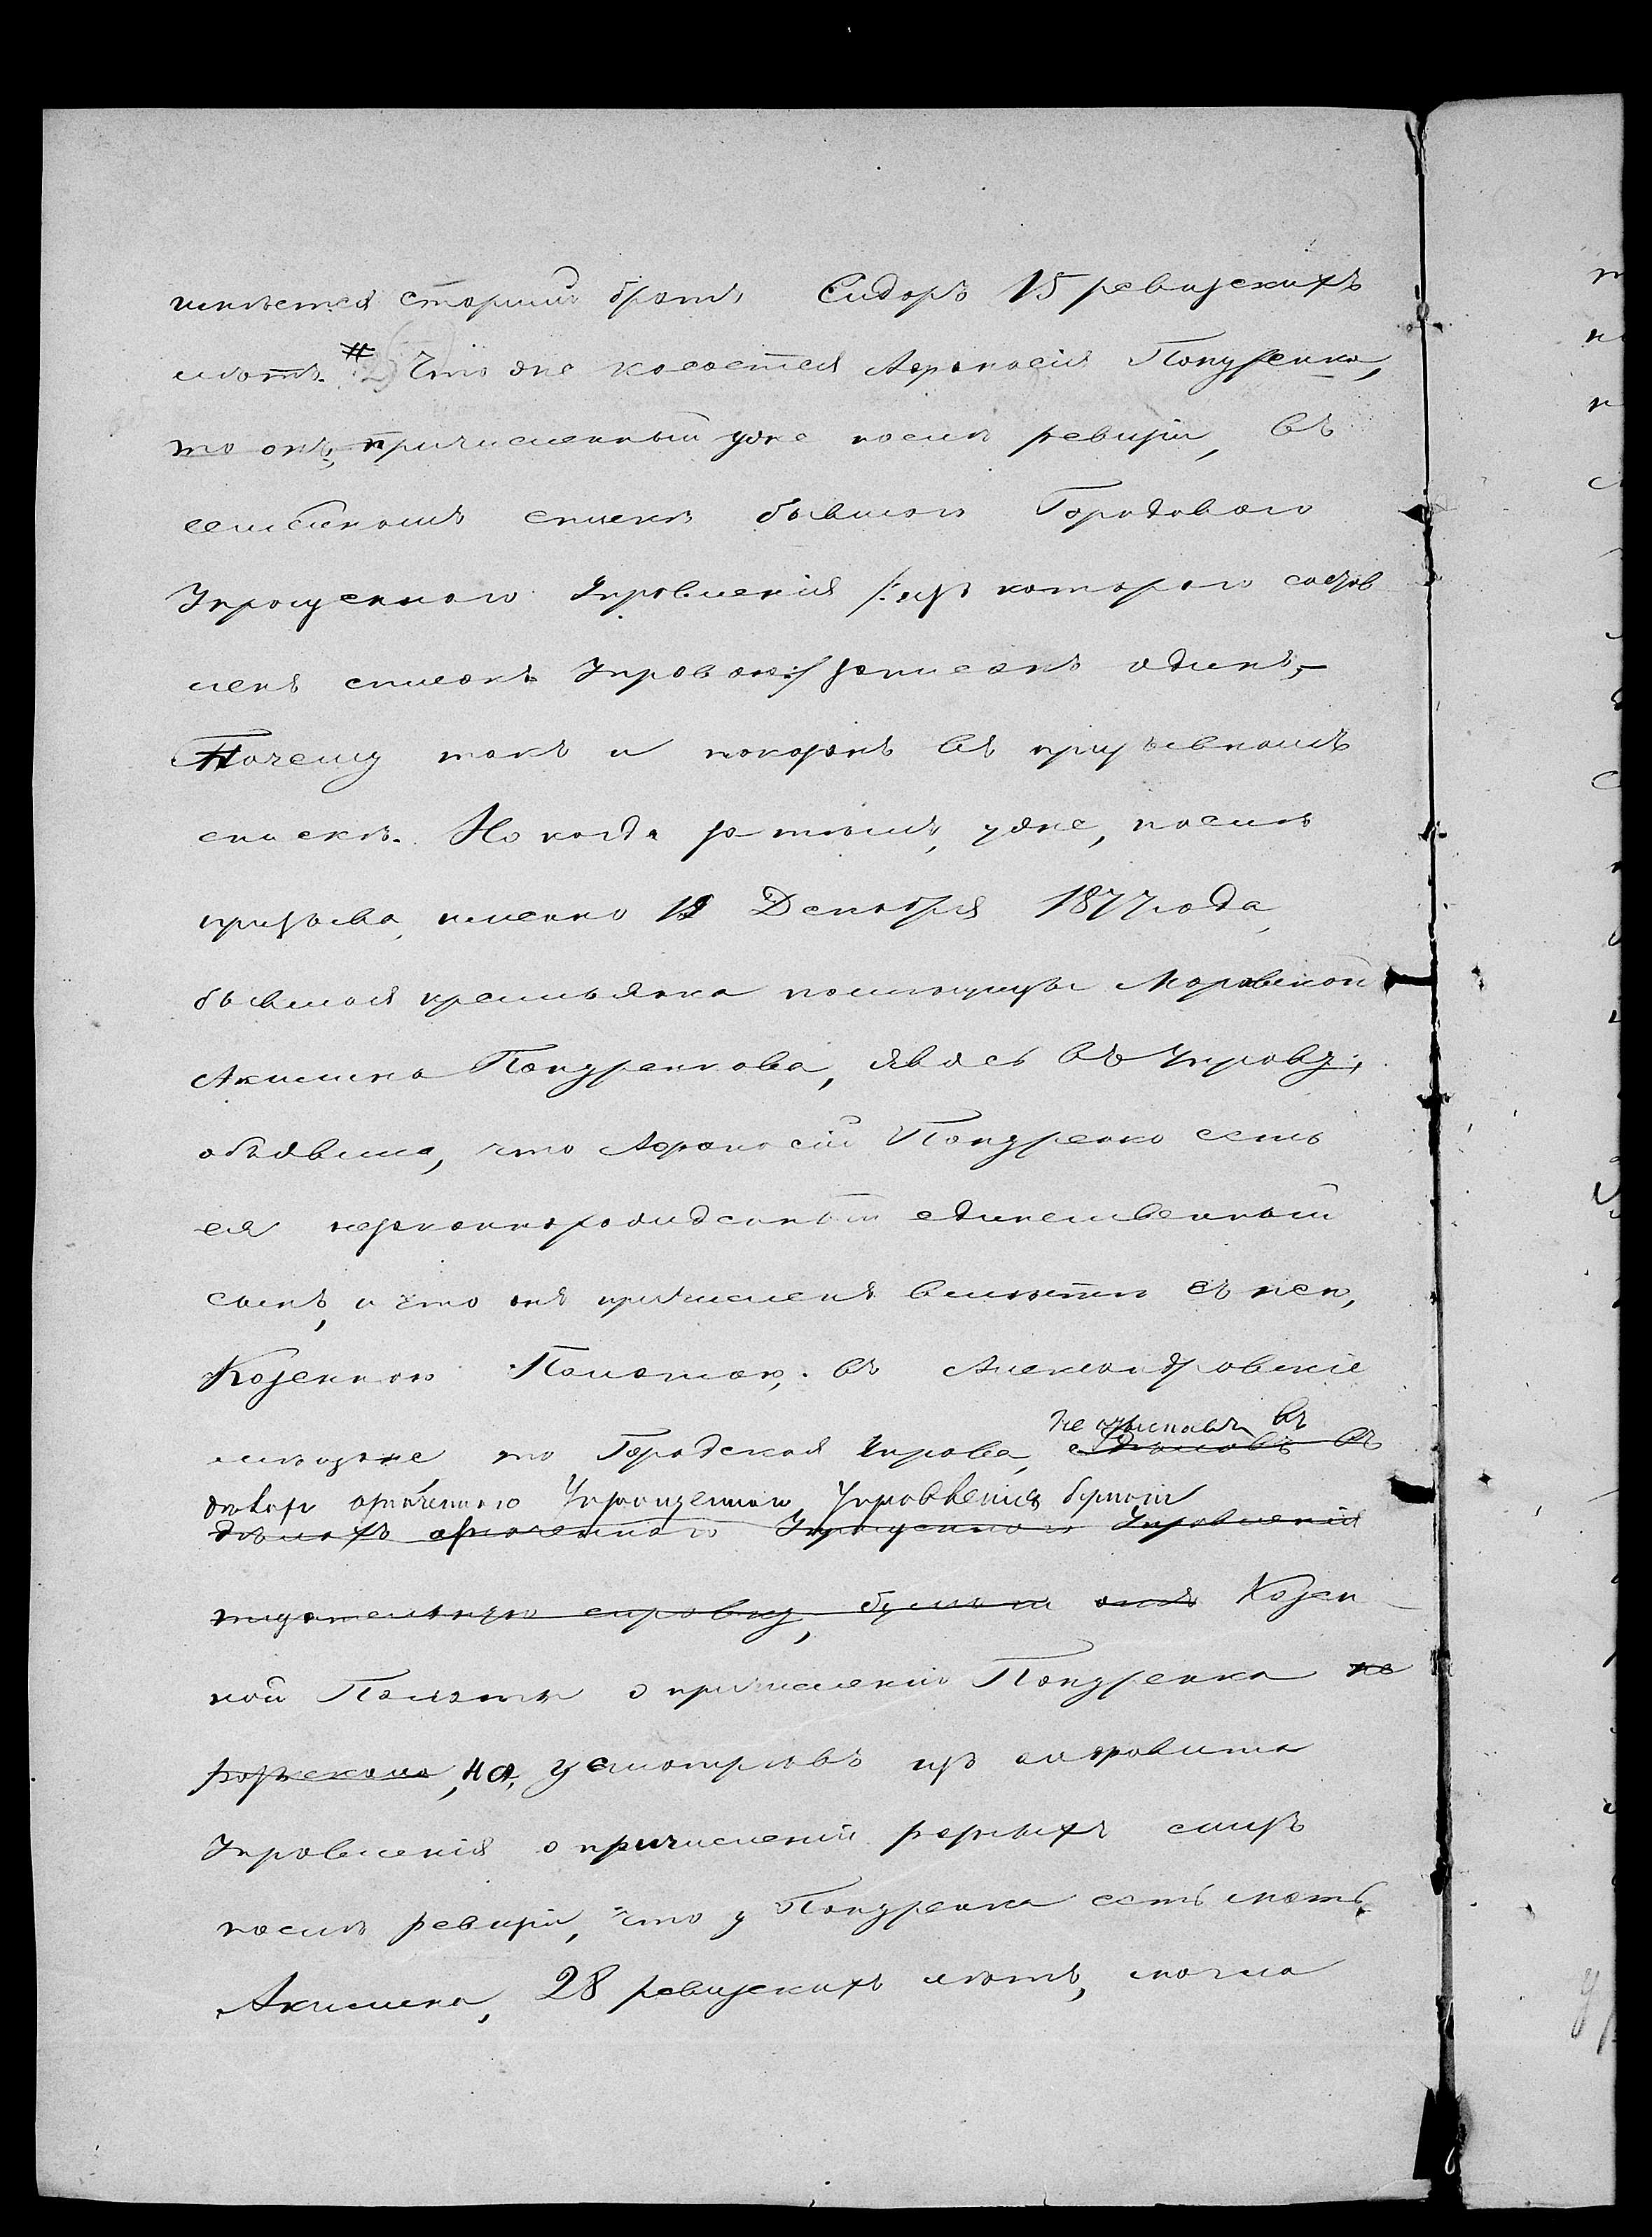 числится старшій братъ Сидоръ 15 ревизскихъ
лѣтъ. # Что же касается Афанасія Понуренка,
то онъ, причисленный уже послѣ ревизіи, въ
семейномъ спискѣ бывшаго Городоваго
Упрощеннаго Управленія /:изъ котораго состав
ленъ списокъ Управою:/ записанъ одинъ,-
Почему такъ и показанъ въ призывномъ
спискѣ. Но когда за тѣмъ, уже, послѣ
призыва, именно 19 Декабря 1877 года,
бывшая крестьянка помѣщицы Марковской
Акилина Понуренкова, явясь въ Управу,
объявила, что Афанасій Понуренко есть
ея незаконнорожденный единственный
сынъ, и что онъ причисленъ вмѣстѣ съ нею,
Казенною Палатою, въ Александровскіе
мѣщане, то Городская Управа, сдѣлавъ въ
не отыскавъ въ
дѣлахъ означеннаго Упрощеннаго Управленія бумаги
дѣлахъ означеннаго Упрощеннаго Управленія
тщательную справку, бумаги Казен-
ной Палаты о причисленіи Понуренка не
розыскала, но, усмотрѣвъ изъ алфавита
Управленія о причисленіи разныхъ лицъ
послѣ ревизіи, что у Понуренка есть мать
Акилина, 28 ревизскихъ лѣтъ, могла